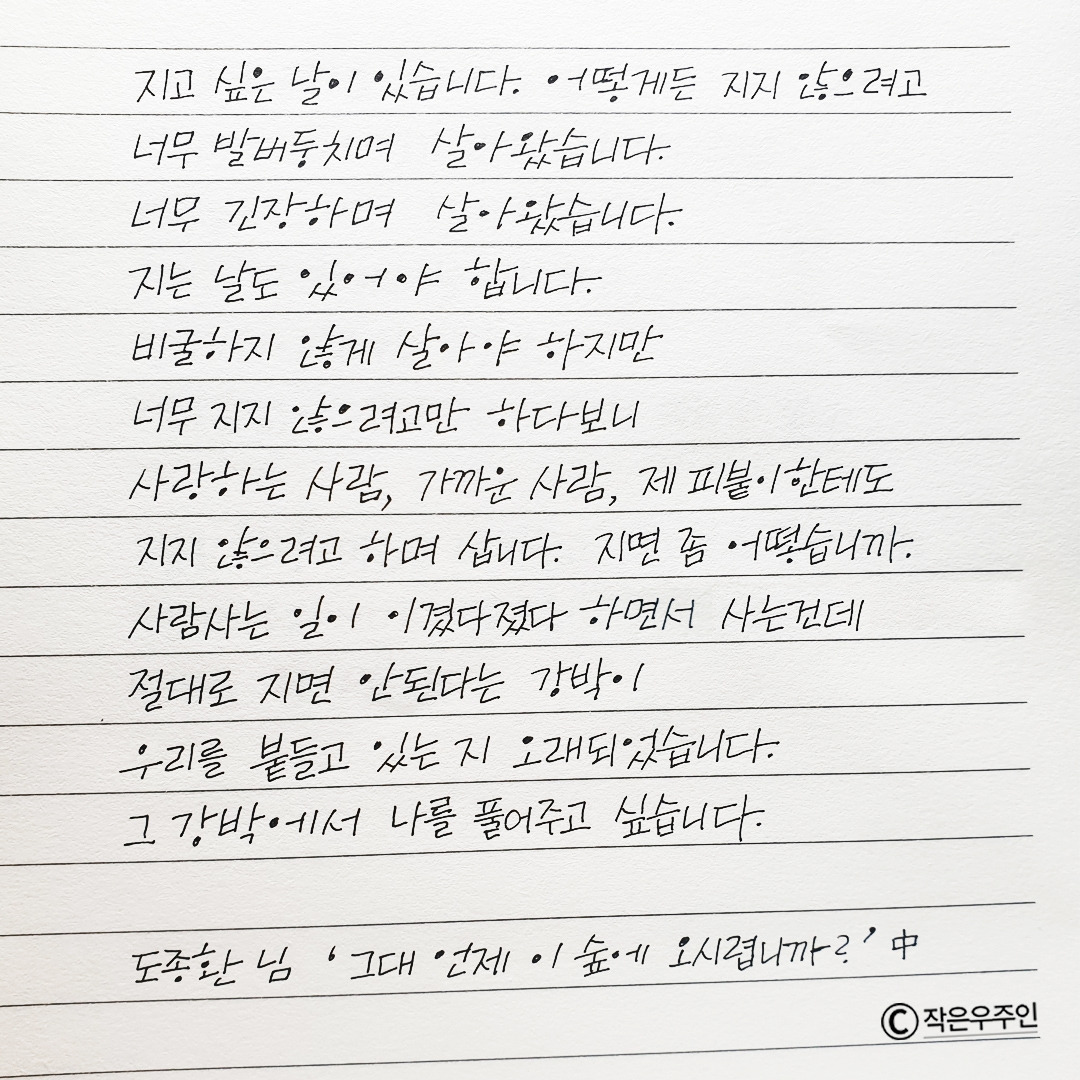 지고 싶은 날이 있습니다. 어떻게든 지지 않으려고
너무 발버둥치며 살아왔습니다.
너무 긴장하며 살아왔습니다.
지는 날도 있어야 합니다.
비굴하지 않게 살아야 하지만
너무 지지 않으려고만 하다보니
사랑하는 사람, 가까운 사람, 제 피붙이한테도
지지 않으려고 하며 삽니다. 지면 좀 어떻습니까.
사람사는 일이 이겼다졌다 하면서 사는건데
절대로 지면 안된다는 강박이
우리를 붙들고 있는 지 오래되었습니다.
그 강박에서 나를 풀어주고 싶습니다.
도종환 님 '그대 언제 이 숲에 오시렵니까?' 中
ⓒ작은우주인